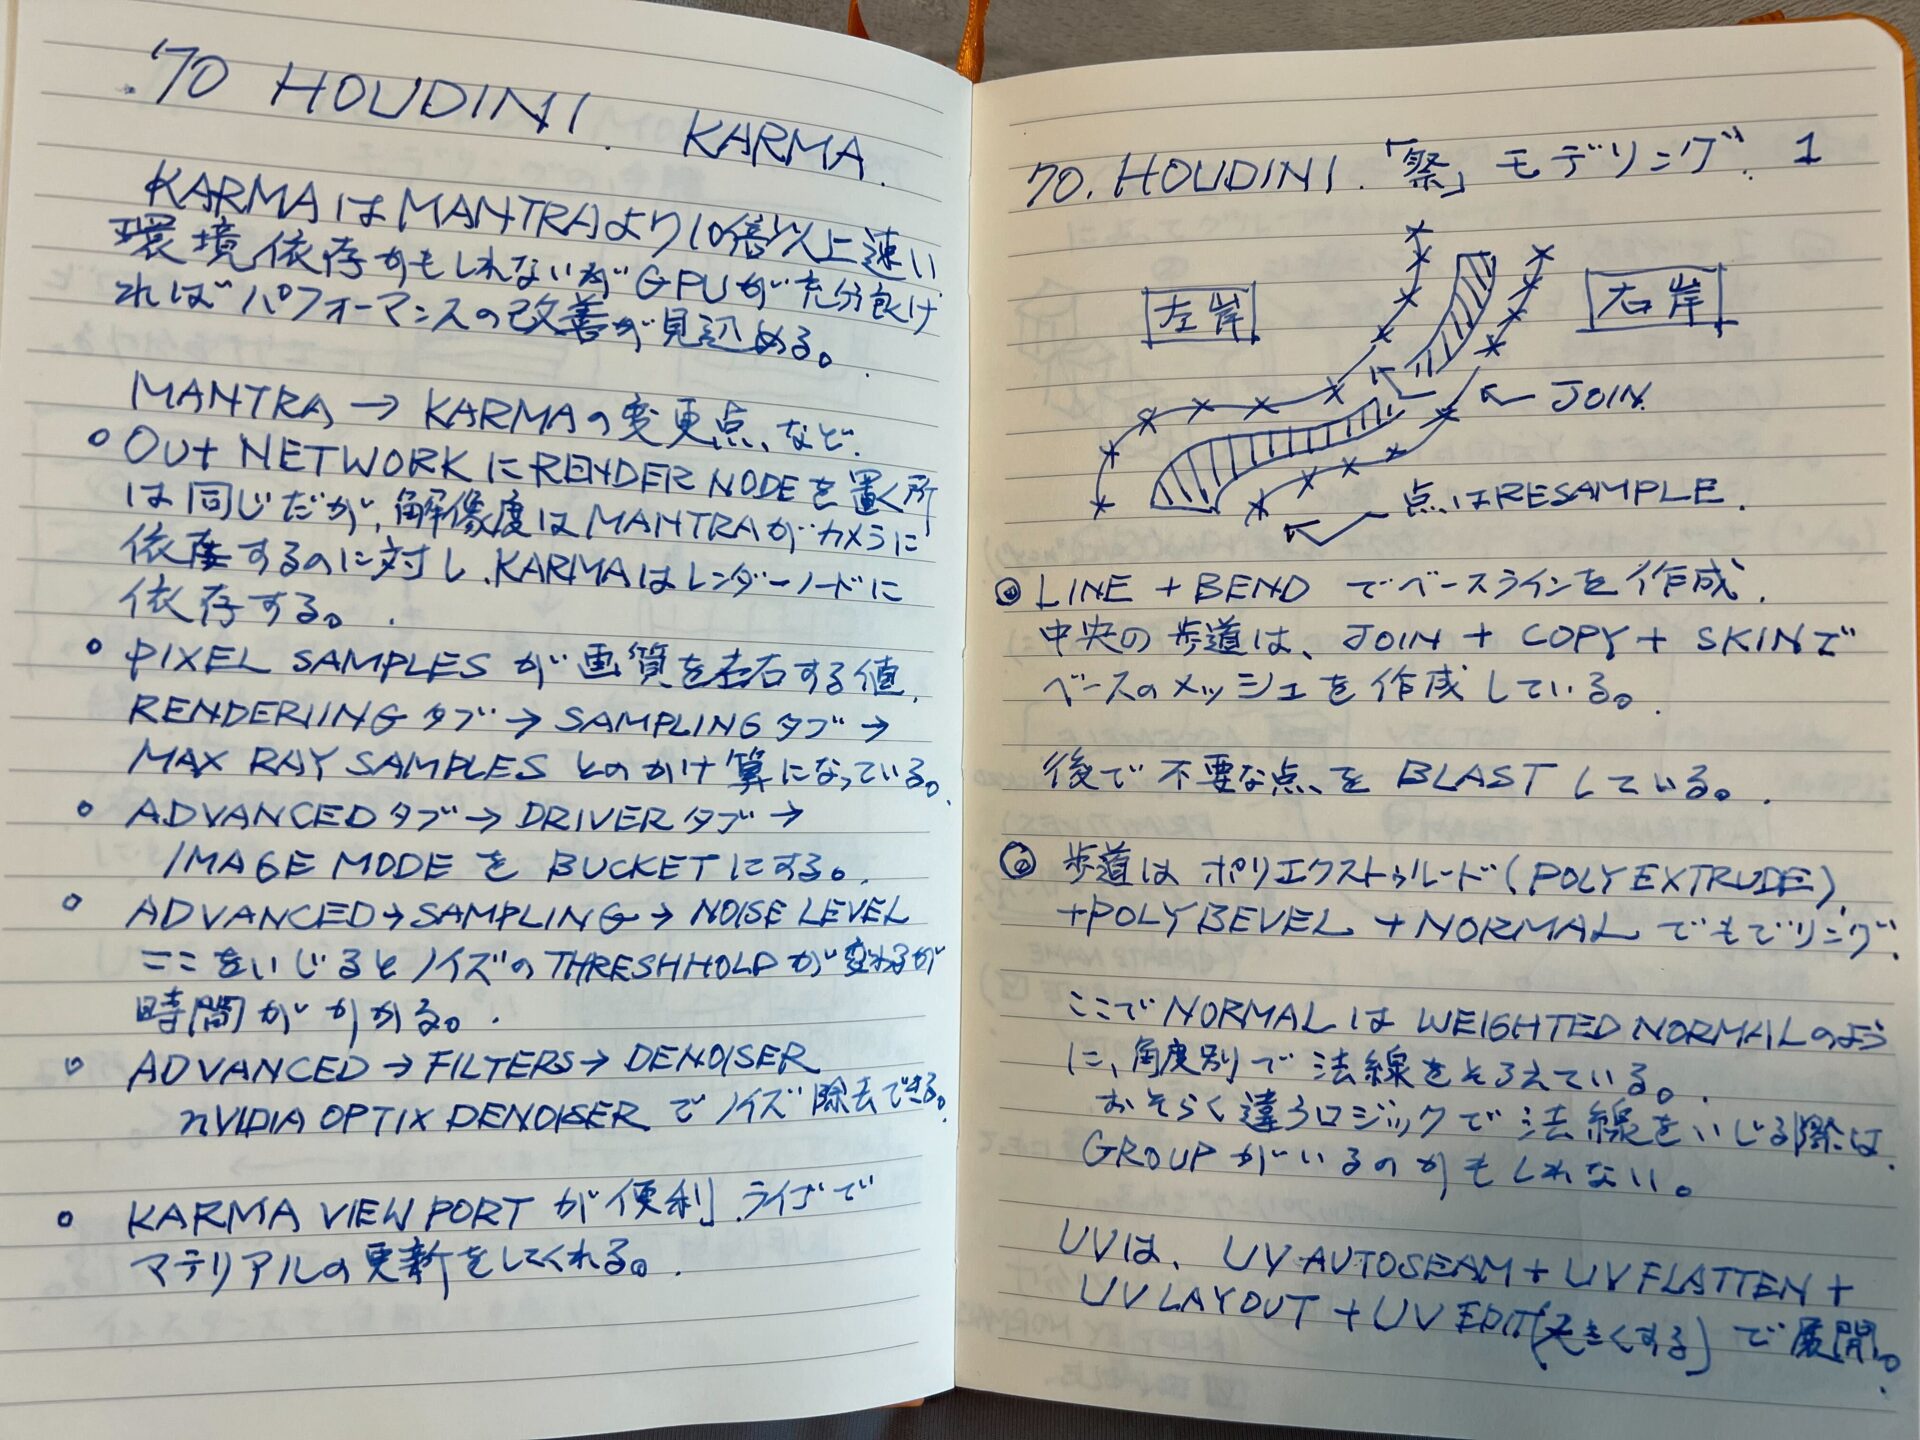 '70 HOUDINI. KARMA.
KARMAはMANTRAより10倍以上速い
環境依存かもしれないがGPUが充分良け
ればパフォーマンスの改善が見込める。
MANTRA → KARMAの変更点、など.
○ OUT NETWORKにRENDER NODEを置く所
は同じだが、解像度はMANTRAがカメラに
依存するのに対し、KARMAはレンダーノードに
依存する。
○ PIXEL SAMPLES が画質を左右する値.
RENDERIINGタブ → SAMPLINGタブ →
MAX RAY SAMPLES とのかけ算になっている。
○ ADVANCEDタブ → DRIVERタブ →
IMAGE MODE を BUCKETにする。
○ ADVANCED → SAMPLING → NOISE LEVEL
ここをいじるとノイズのTHRESHHOLDが変わるが
時間がかかる。
○ ADVANCED → FILTERS → DENOISER
nVIDIA OPTIX DENOISERでノイズ除去できる。
○ KARMA VIEW PORTが便利.ライブで
マテリアルの更新をしてくれる。
70. HOUDINI.「祭」モデリング. 1
左岸
右岸
← JOIN.
← 点はRESAMPLE.
◎ LINE + BEND でベースラインを作成.
中央の歩道は、JOIN + COPY + SKINで
ベースのメッシュを作成している。
後で不要な点をBLASTしている。
◎ 歩道はポリエクストゥルード(POLYEXTRUDE)
+POLYBEVEL +NORMALでもでリング.
ここでNORMALはWEIGHTED NORMALのよう
に、角度別で法線をそろえている。
おそらく違うロジックで法線をいじる際は、
GROUPがいるのかもしれない。
UVは、UV AUTOSEAM + UV FLATTEN +
UV LAYOUT + UV EDIT(大きくする)で展開。